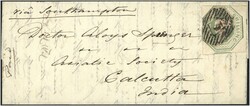 via Southampton
Doctor Aloys Sprenger
Asiatic Society
Calcutta
India